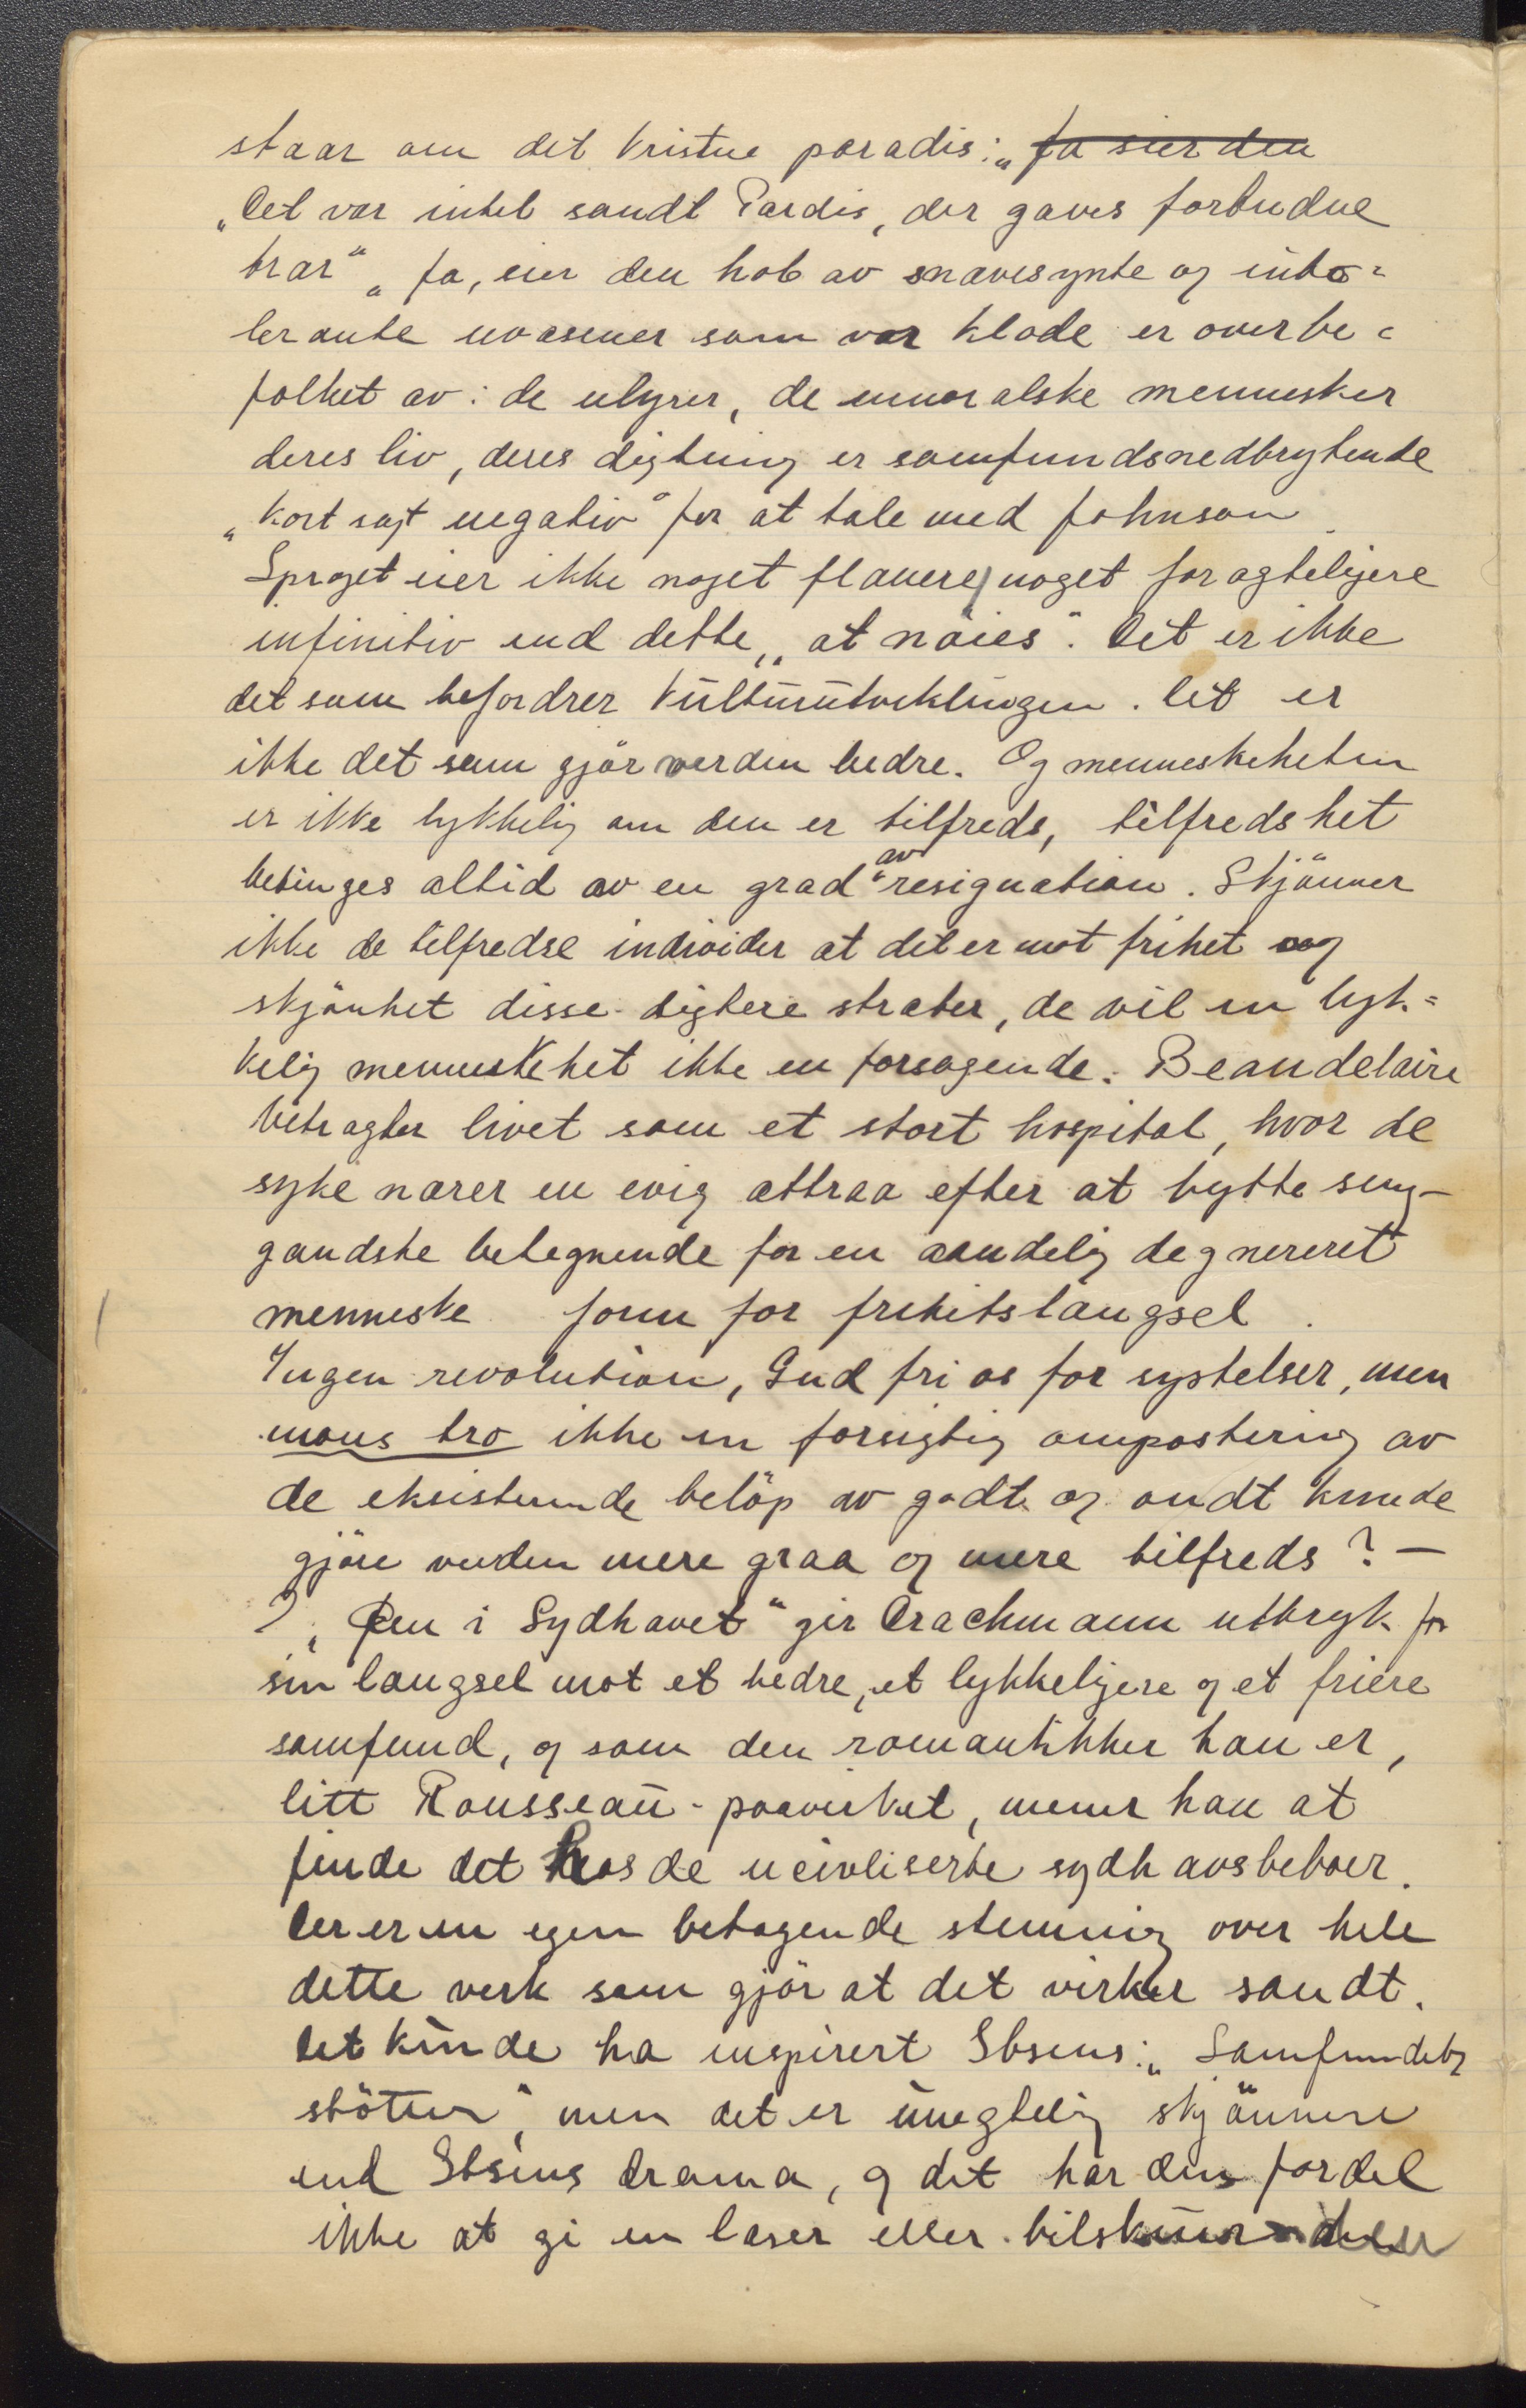 staar om det kristne paradis: „ Ja sier den
„Det var intet sandt Pardis, der gaves forbudne
trær“ „ Ja, sier den hob av snæversynte og into=
lerante uvæsener som vor klode er overbe=
folket av: de utyrer, de umoralske mennesker
deres liv, deres digtning er samfundsnedbrytende
„kort sagt negativ“ for at tale med Johnson.
Sproget eier ikke noget flauere, noget foragteligere
infinitiv end dette „at nöies“. Det er ikke
det som befordrer kulturutviklingen. Det er
ikke det som gjör verden bedre. Og menneskeheten
er ikke lykkelig om den er tilfreds, tilfredshet
betinges altid av en grad av resignation. Skjönner
ikke de tilfredse individer at det er mot frihet og
skjönhet disse digtere stræber, de vil en lyk=
kelig menneskehet ikke en forsagende. Beaudelaire
betragter livet som et stort hospital, hvor de
syke nærer en evig attraa efter at bytte seng –
gandske betegnende for en aandelig degnereret
menneske form for frihetslængsel.
Ingen revolution, Gud fri os for rystelser, men
mons tro ikke en forsigtig ompostering av
de eksisterende belöp av godt og ondt kunde
gjöre verden mere graa og mere tilfreds? –
I „ Öen i Sydhavet“ gir Drachmann uttryk for
sin længsel mot et bedre, et lykkeligere og et friere
samfund, og som den romantikker han er,
litt Rousseau-paavirket, mener han at
finde det hos de uciviliserte sydhavsbeboer.
Der er en egen betagende stemning over hele
dette verk som gjör at det virker sandt.
Det kunde ha inspirert Ibsens: „ Samfundets
stötter“, men det er unegtelig skjönnere
end Ibsens drama, og det har den fordel
ikke at gi en læser eller tilskuer den